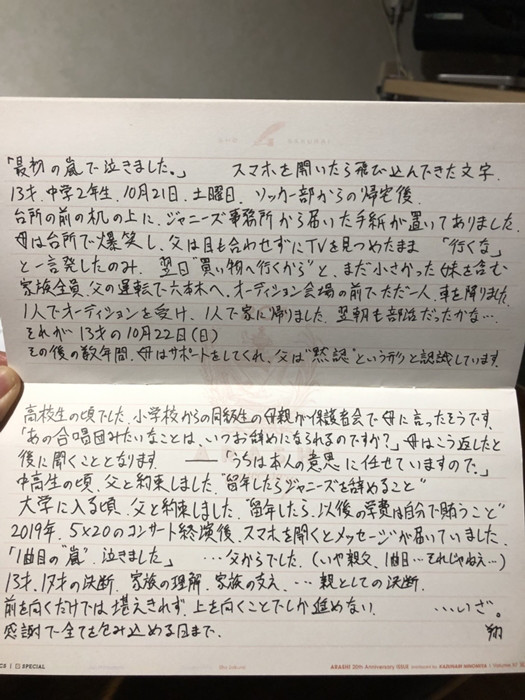 「最初の嵐で泣きました。」　スマホを開いたら飛び込んできた文字.
13才.中学2年生.10月21日.土曜日.ソッカー部からの帰宅後.
台所の前の机の上に、ジャニーズ事務所から届いた手紙が置いてありました.
母は台所で爆笑し、父は目も合わせずにTVを見つめたまま「行くな」
と一言発したのみ.翌日"買い物へ行くから"と、まだ小さかった妹を含む
家族全員.父の運転で六本木へ.オーディション会場の前でただ一人.車を降りました.
1人でオーディションを受け、1人で家に帰りました.翌朝も部活だったかな…
それが13才の10月22日(日)
その後の数年間.母はサポートをしてくれ、父は"黙認"という形と認識しています.
高校生の頃でした.小学校からの同級生の母親が保護者会で母に言ったそうです.
「あの合唱団みたいなことは、いつお辞めになられるのですか?」母はこう返したと
後に聞くこととなります.――「うちは本人の意思に任せていますので.」
中高生の頃.父と約束しました."留年したらジャニーズを辞めること"
大学に入る頃.父と約束しました."留年したら、以後の学費は自分で賄うこと"
2019年.5×20のコンサート終演後.スマホを開くとメッセージが届いていました.
「1曲目の"嵐".泣きました」…父からでした.(いや親父、1曲目…それじゃねえ…)
13才.17才の決断.家族の理解.家族の支え.…親としての決断.
前を向くだけでは堪えきれず.上を向くことでしか進めない.…いざ。
感謝で全てを包み込める日まで.　翔
CS | SPECIAL
ARASHI 20th Anniversary ISSUE produced by KAZUNARI NINOMIYA